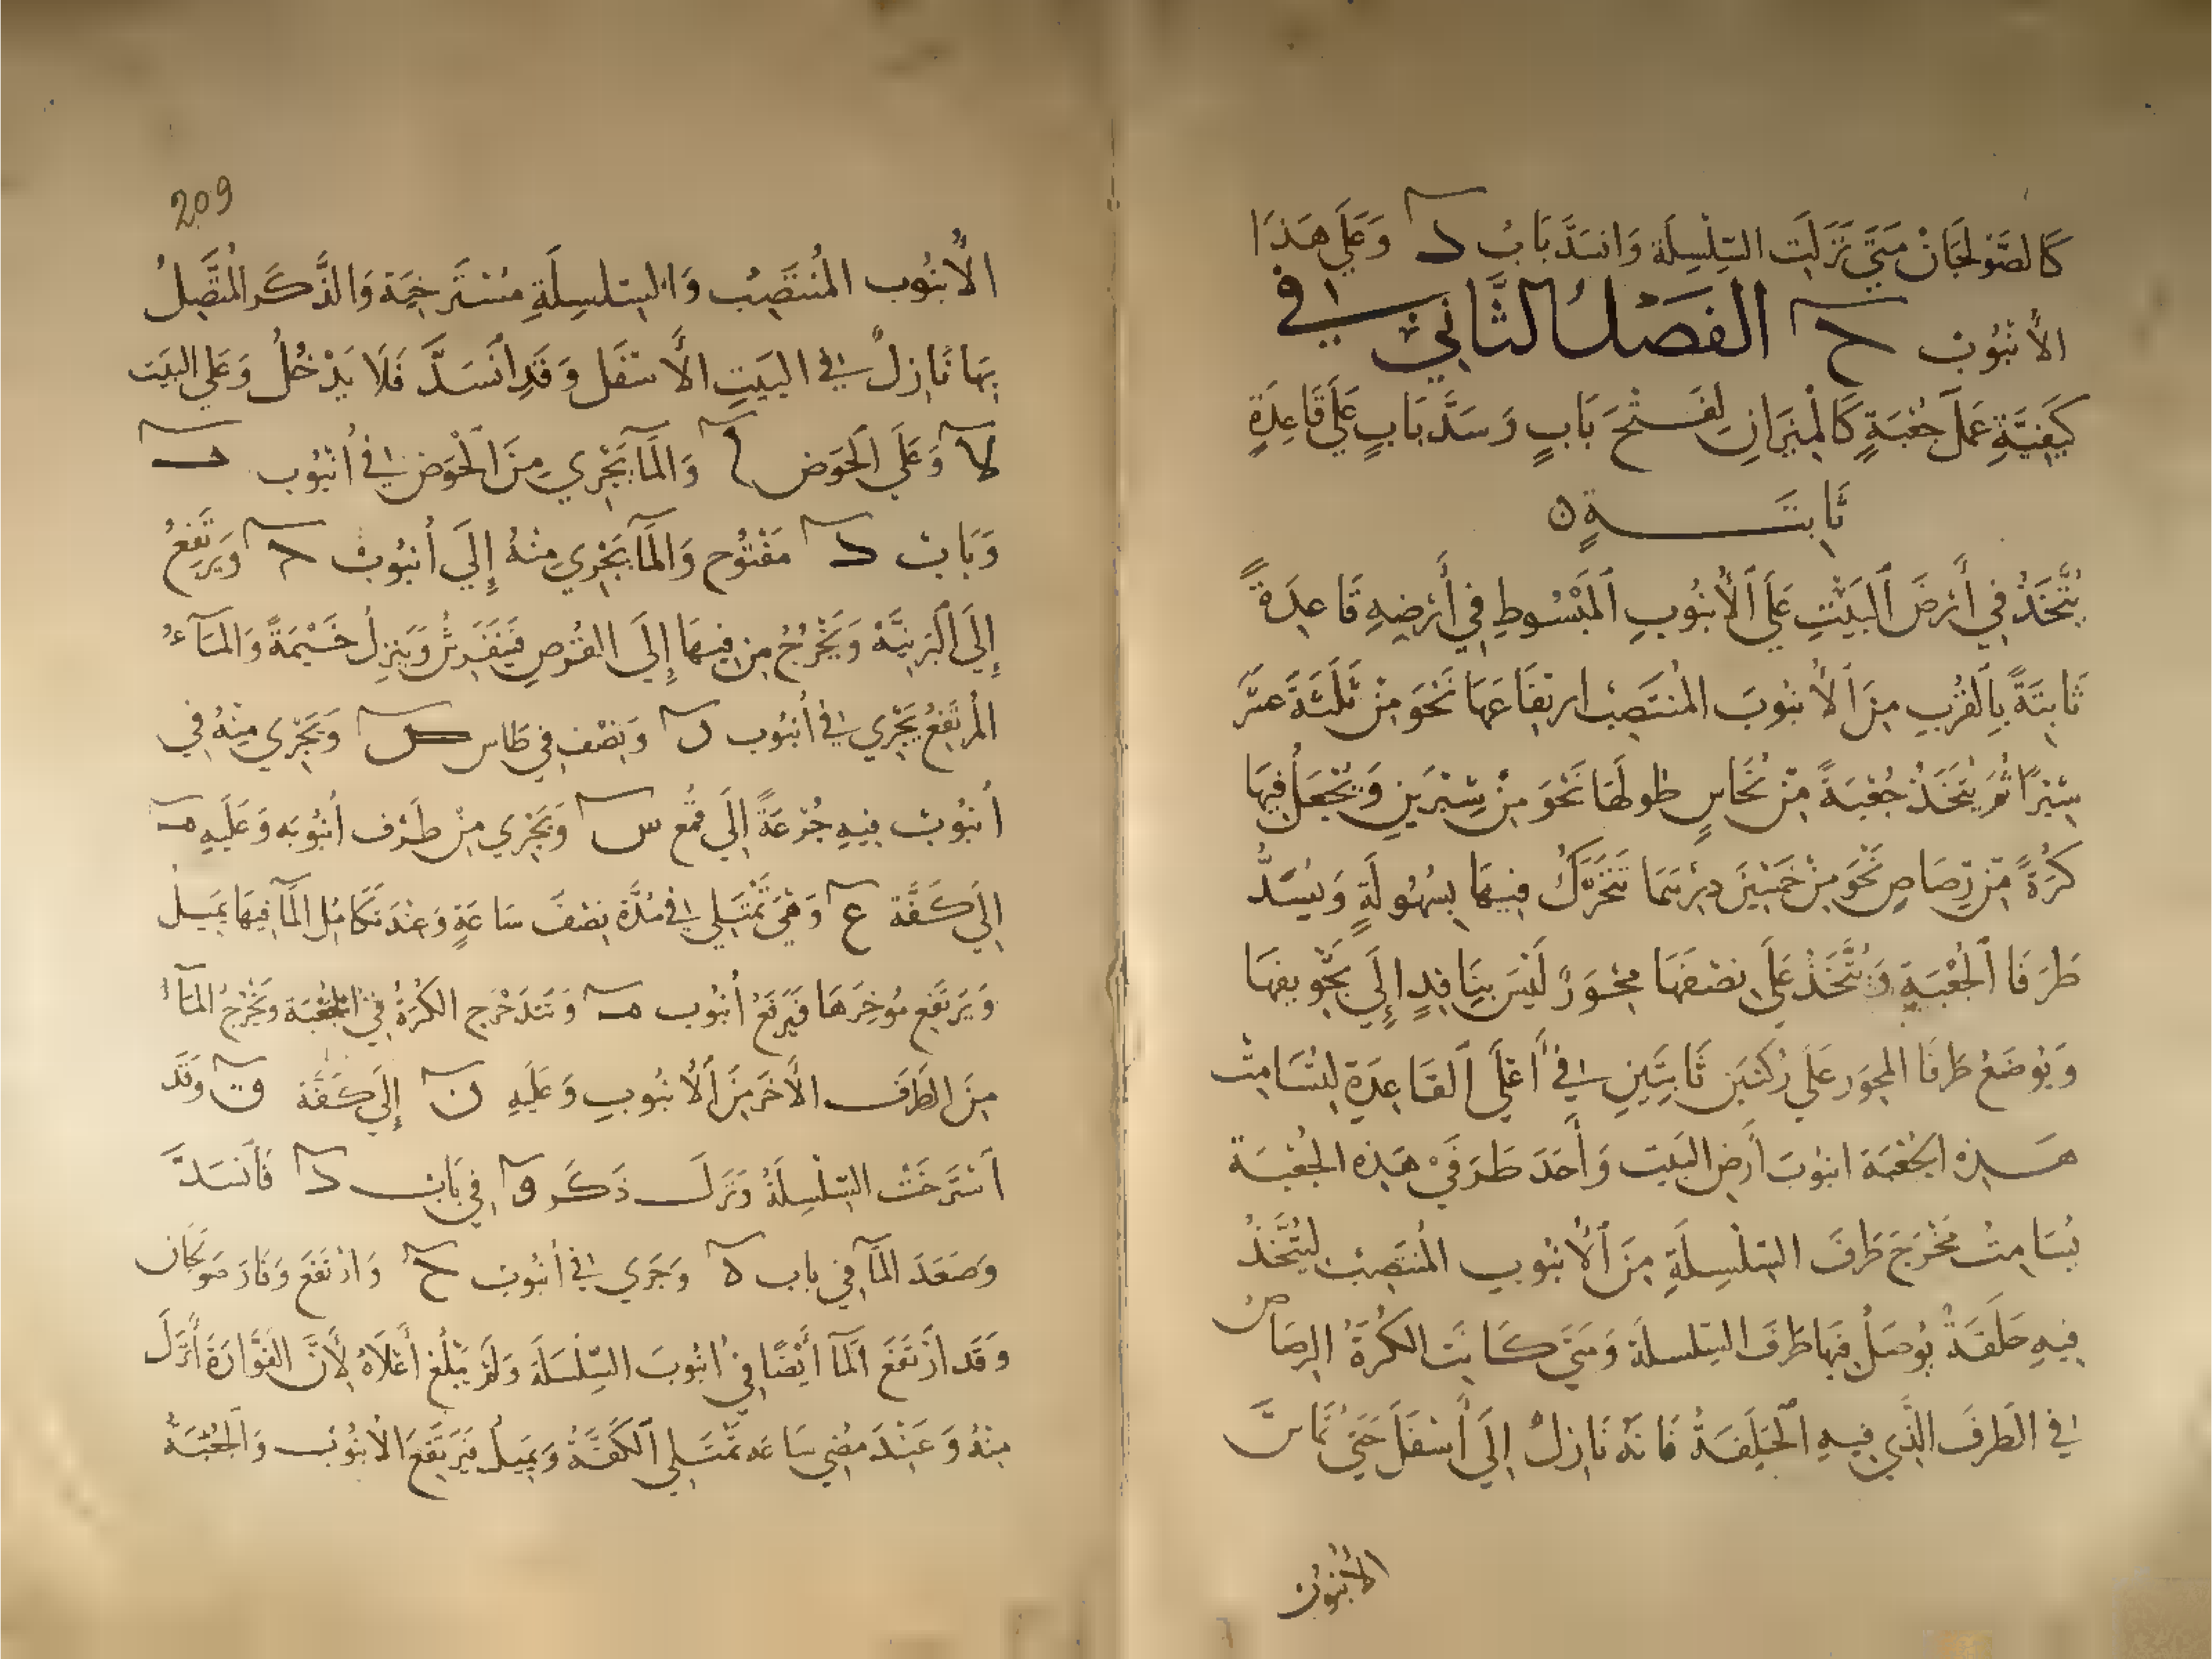 كَالصَّوْلَجَانْ مَتَى نَزَلَت السِّلْسِلَة وَانسَدَّ بَابُ د وَعَلَى هَذَا
الأُنْبُوب ح الفَصْلُ الثَّانِي فِي
كَيفِيَّةِ عَمَلِ جُعْبَةٍ كَالْمِيزَانِ لِفَتْحِ بَابٍ وَسَدَّ بَابٍ عَلَى قَاعِدَةٍ
ثَابِتَةٍ ٥
يُتَّخَذُ فِي أَرْضِ ٱلْبَيْتِ عَلَى ٱلأُنْبُوبِ ٱلمَبْسُوطِ فِي أَرْضِهِ قَاعِدَةً
ثَابِتَةً بِالقُرْبِ مِنَ ٱلأُنْبُوبَ المُنتَصِبْ ارتِفَاعَهَا نَحْوَ مِنْ ثَلَثَةَ عشَر
شِبْرًا ثُمَّ يُتَّخَذُ جُعْبَةً مِنْ نُحَاسٍ طُولُهَا نَحْوَ مِنْ شِبْرَينِ وَيُجْعَلُ فِيهَا
كُرَةً مِن رَصَاصٍ نَحْوَ مِنْ خَمْسِينَ دِرْهَمًا تَتَحَرَّكُ فِيهَا بِسُهُولَةٍ وَيُسَدُّ
طَرَفَا ٱلجُعْبَةِ وَيُتَّخَذُ عَلَى نِصْفِهَا مِحْوَرٌ لَيْسَ بِنَافِدٍ إِلَي تَجْوِيفهَا
وَيُوضَعُ طَرَفَا المِحوَر عَلَى رُكنَيَن ثَابِتَيِنِ فِي أَعْلَى ٱلقَاعِدَة لِيُسَامِتْ
هَذِهِ الجُعْبَة انبُوبَ أَرضِ البَيت وَأَحَدَ طَرَفَيْ هَذِهِ الجُعْبَةَ
يُسَامِتُ مَخْرَجَ طَرَفَ السِّلْسِلَةِ مِنَ ٱلأُنْبُوبِ المُنتَصِبْ لِيُتَّخَذُ
فِيهِ حَلقَةٌ يُوصَلُ فِيهَا طَرَفَ السِّلسلَة وَمَتَى كَانَت الكُرَةُ الرصَاصُ
فِي الطَرفَ الَّذِي فِيهِ ٱلحَلَقَةُ فَانَهُ نَازِلُ إِلَى أَسْفَلَ حَتَى يُمَاسَّ
الأُنْبُوبُ
209
الأُنبُوب المُنتَصِبُ وَالسِّلسِلَةِ مُسْتَرخِيَة وَالذَّكَر المُتَّصِلُ
بِهَا نَازِلٌ فِي البَيتِ الأَسْفَل وَقَدِ انْسَدَّ فَلَا يَدْخُلُ وَعَلَى البَيَت
كا وَعَلَى ٱلحَوَض ل وَالمَآ يَجْرِي مِنَ ٱلْحَوَض فِي أُنْبُوب
وَبَابُ د مَفْتُوح وَالمَآ يَجْرِي مِنْهُ إِلَى أُنبُوبْ ح وَيَرتَفِعُ
إِلَى ٱلبَرنِيَّة وَيَخْرُجُ مِن فِيهَا إِلَى القُرْصِ فَيَنفَرِشُ وَيَنزِلُ خَيْمَةً وَالمَآءُ
المُرتَفِعُ يَجْرِي فِي أُنبُوب ن وَيَصُبْ فِي طَاس وَيَجْرِي مِنْهُ فِي
أُنبُوبْ فِيهِ جُزْعَةً إِلَى قُمْع س وَيَجْرِي مِنْ طَرَف أُنبُوبَه وَعَلَيهِ م
اِلَى كَفَّة ع وَهِيَ تَمْتَلِي فِي مُدَّةِ نِصْفَ سَاعَةٍ وَعِنْدَ تَكَامُل المَآ فِيهَا يَمِيلُ
وَيَرتَفِع مُؤخِرَهَا فَيَرفَعُ أُنْبُوب م وَتَتَدَحْرَج الكُرَةُ فِي ٱلجُعْبَة وَيَخْرُجُ المَآءُ
مِنَ الطَرَف الأَخَر مِنَ ٱلأُنْبُوبِ وَعَلَيهِ ن إِلَى كَفَّة ق وَقَد
اَسْتَرخَتْ السِّلْسِلَةُ وَنَزَلَ ذَكَر و فِي بَابْ د فَانسَدَّ
وَصَعَدَ المَآ فِي باب ه وَجَرَي فِي أُنبُوب ح وَارْتَفَعَ وَفَارَ صَولَجَان
وَقَد ارْتَفَعَ المَآ أَيْضًا فِي أُنبُوبَ السِّلْسلَة وَلَمْ يَبْلُغ أَعْلَاهُ لِأَنَّ الفَوَّارَةَ أَنزَلَ
مِنْهُ وَعِنْدَ مُضِي سَاعَه تَمْتَلِي ٱلكَفَّةُ وَيَمِيلُ فَيَرتَفِعُ الأُنبُوب وَٱلجُعْبَةُ